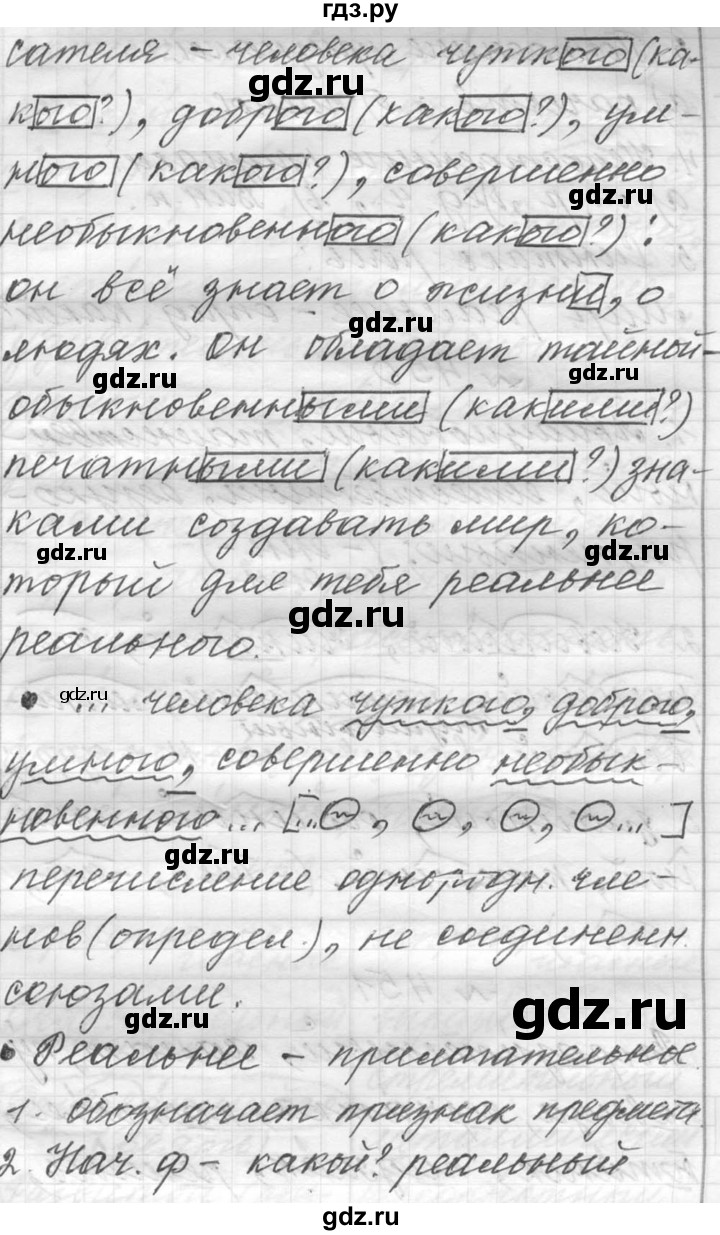 гдз.ру
сателя - человека чуткого (ка-
gdz.ru
кого?), доброго (какого?), ум-
ного (какого?), совершенно
gdz.ru
необыкновенного (какого?):
он всё знает о жизни, о
gdz.ru
людях. Он обладает тайной -
gdz.ru gdz.ru
обыкновенными (какими?)
печатными (какими?) зна-
ками создавать мир, ко-
gdz.ru gdz.ru
торый для тебя реальнее
gdz.ru
реального.
gdz.ru
• ... человека чуткого, доброго,
умного, совершенно необык-
новенного... [...~, ~, ~, ~...]
gdz.ru
перечисление однородн. чле-
нов (определ.), не соединенн.
союзами.
gdz.ru gdz.ru
• Реальнее - прилагательное
1. обозначает признак предмета.
2. Нач. ф - какой? реальный
gdz.ru